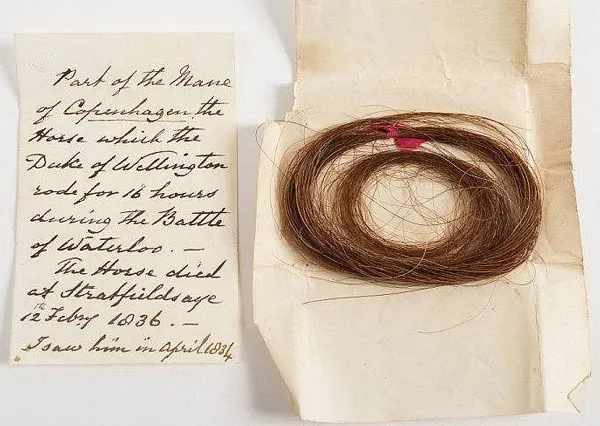 Part of the Mane
of Copenhagen, the
Horse which the
Duke of Wellington
rode for 18 hours
during the Battle
of Waterloo. —
The Horse died
at Stratfieldsaye
12th Febry 1836. —
I saw him in April 1834